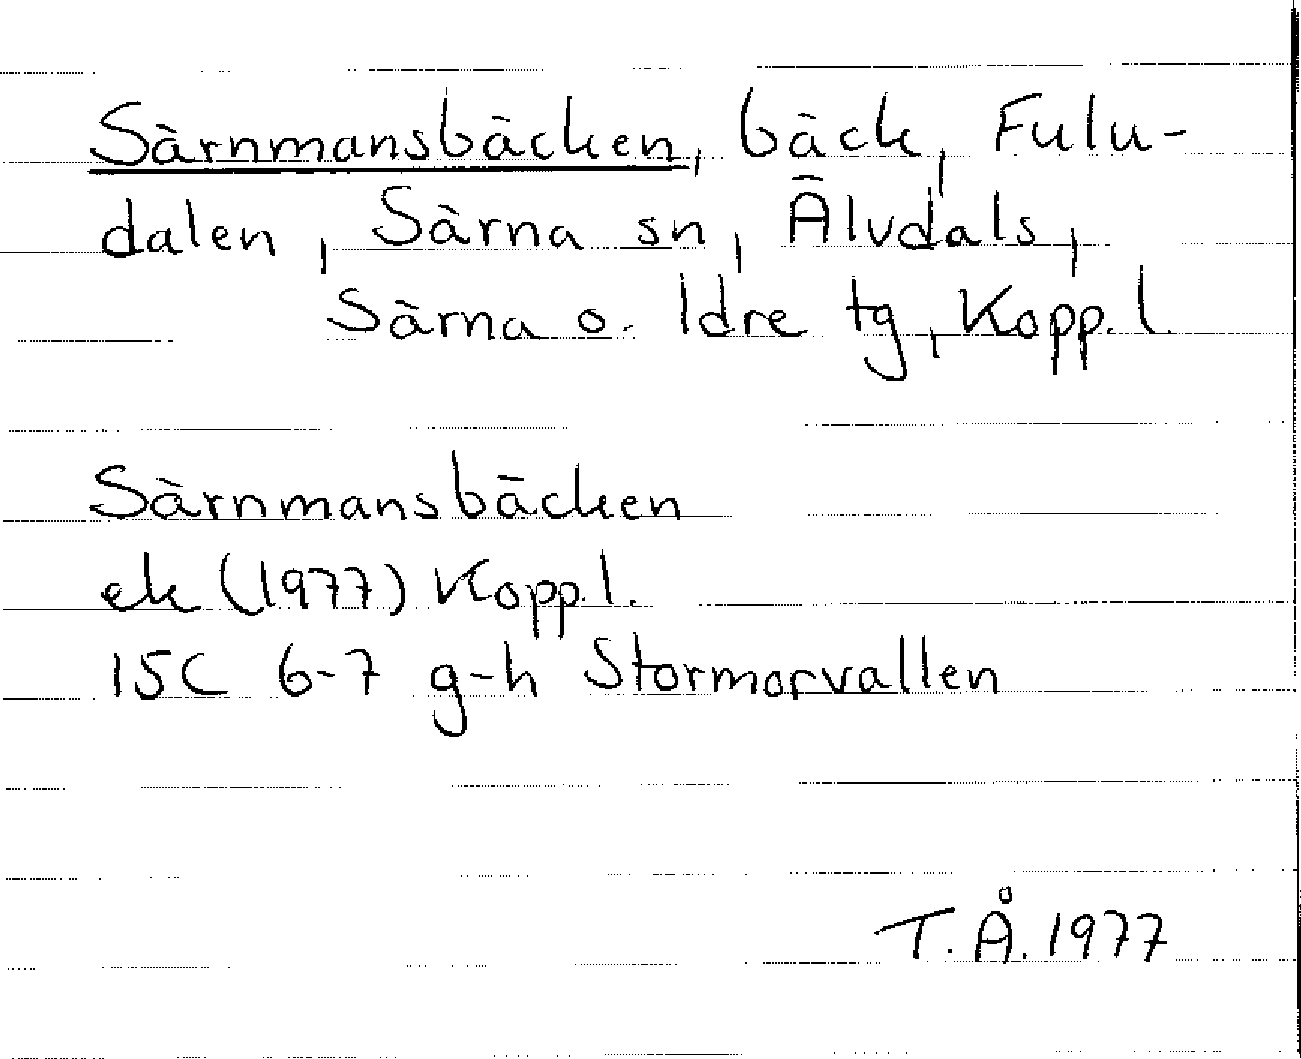 Särnmansbäcken, bäck, Fulu-
dalen, Särna sn, Älvdals,
Särna o. Idre tg, Kopp. l.
Särnmansbäcken
ek (1977) Kopp. l.
15C 6-7 g-h Stormorvallen
T.Å. 1977